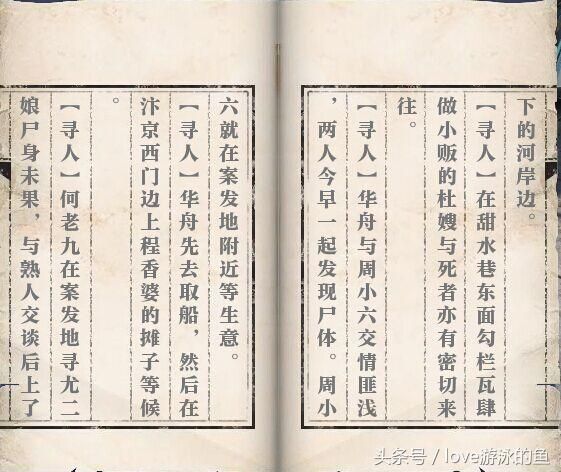 下的河岸边。
【寻人】在甜水巷东面勾栏瓦肆
做小贩的杜嫂与死者亦有密切来
往。
【寻人】华舟与周小六交情匪浅
，两人今早一起发现尸体。周小
六就在案发地附近等生意。
【寻人】华舟先去取船，然后在
汴京西门边上程香婆的摊子等候
。
【寻人】何老九在案发地寻尤二
娘尸身未果，与熟人交谈后上了
头条号／love游泳的鱼